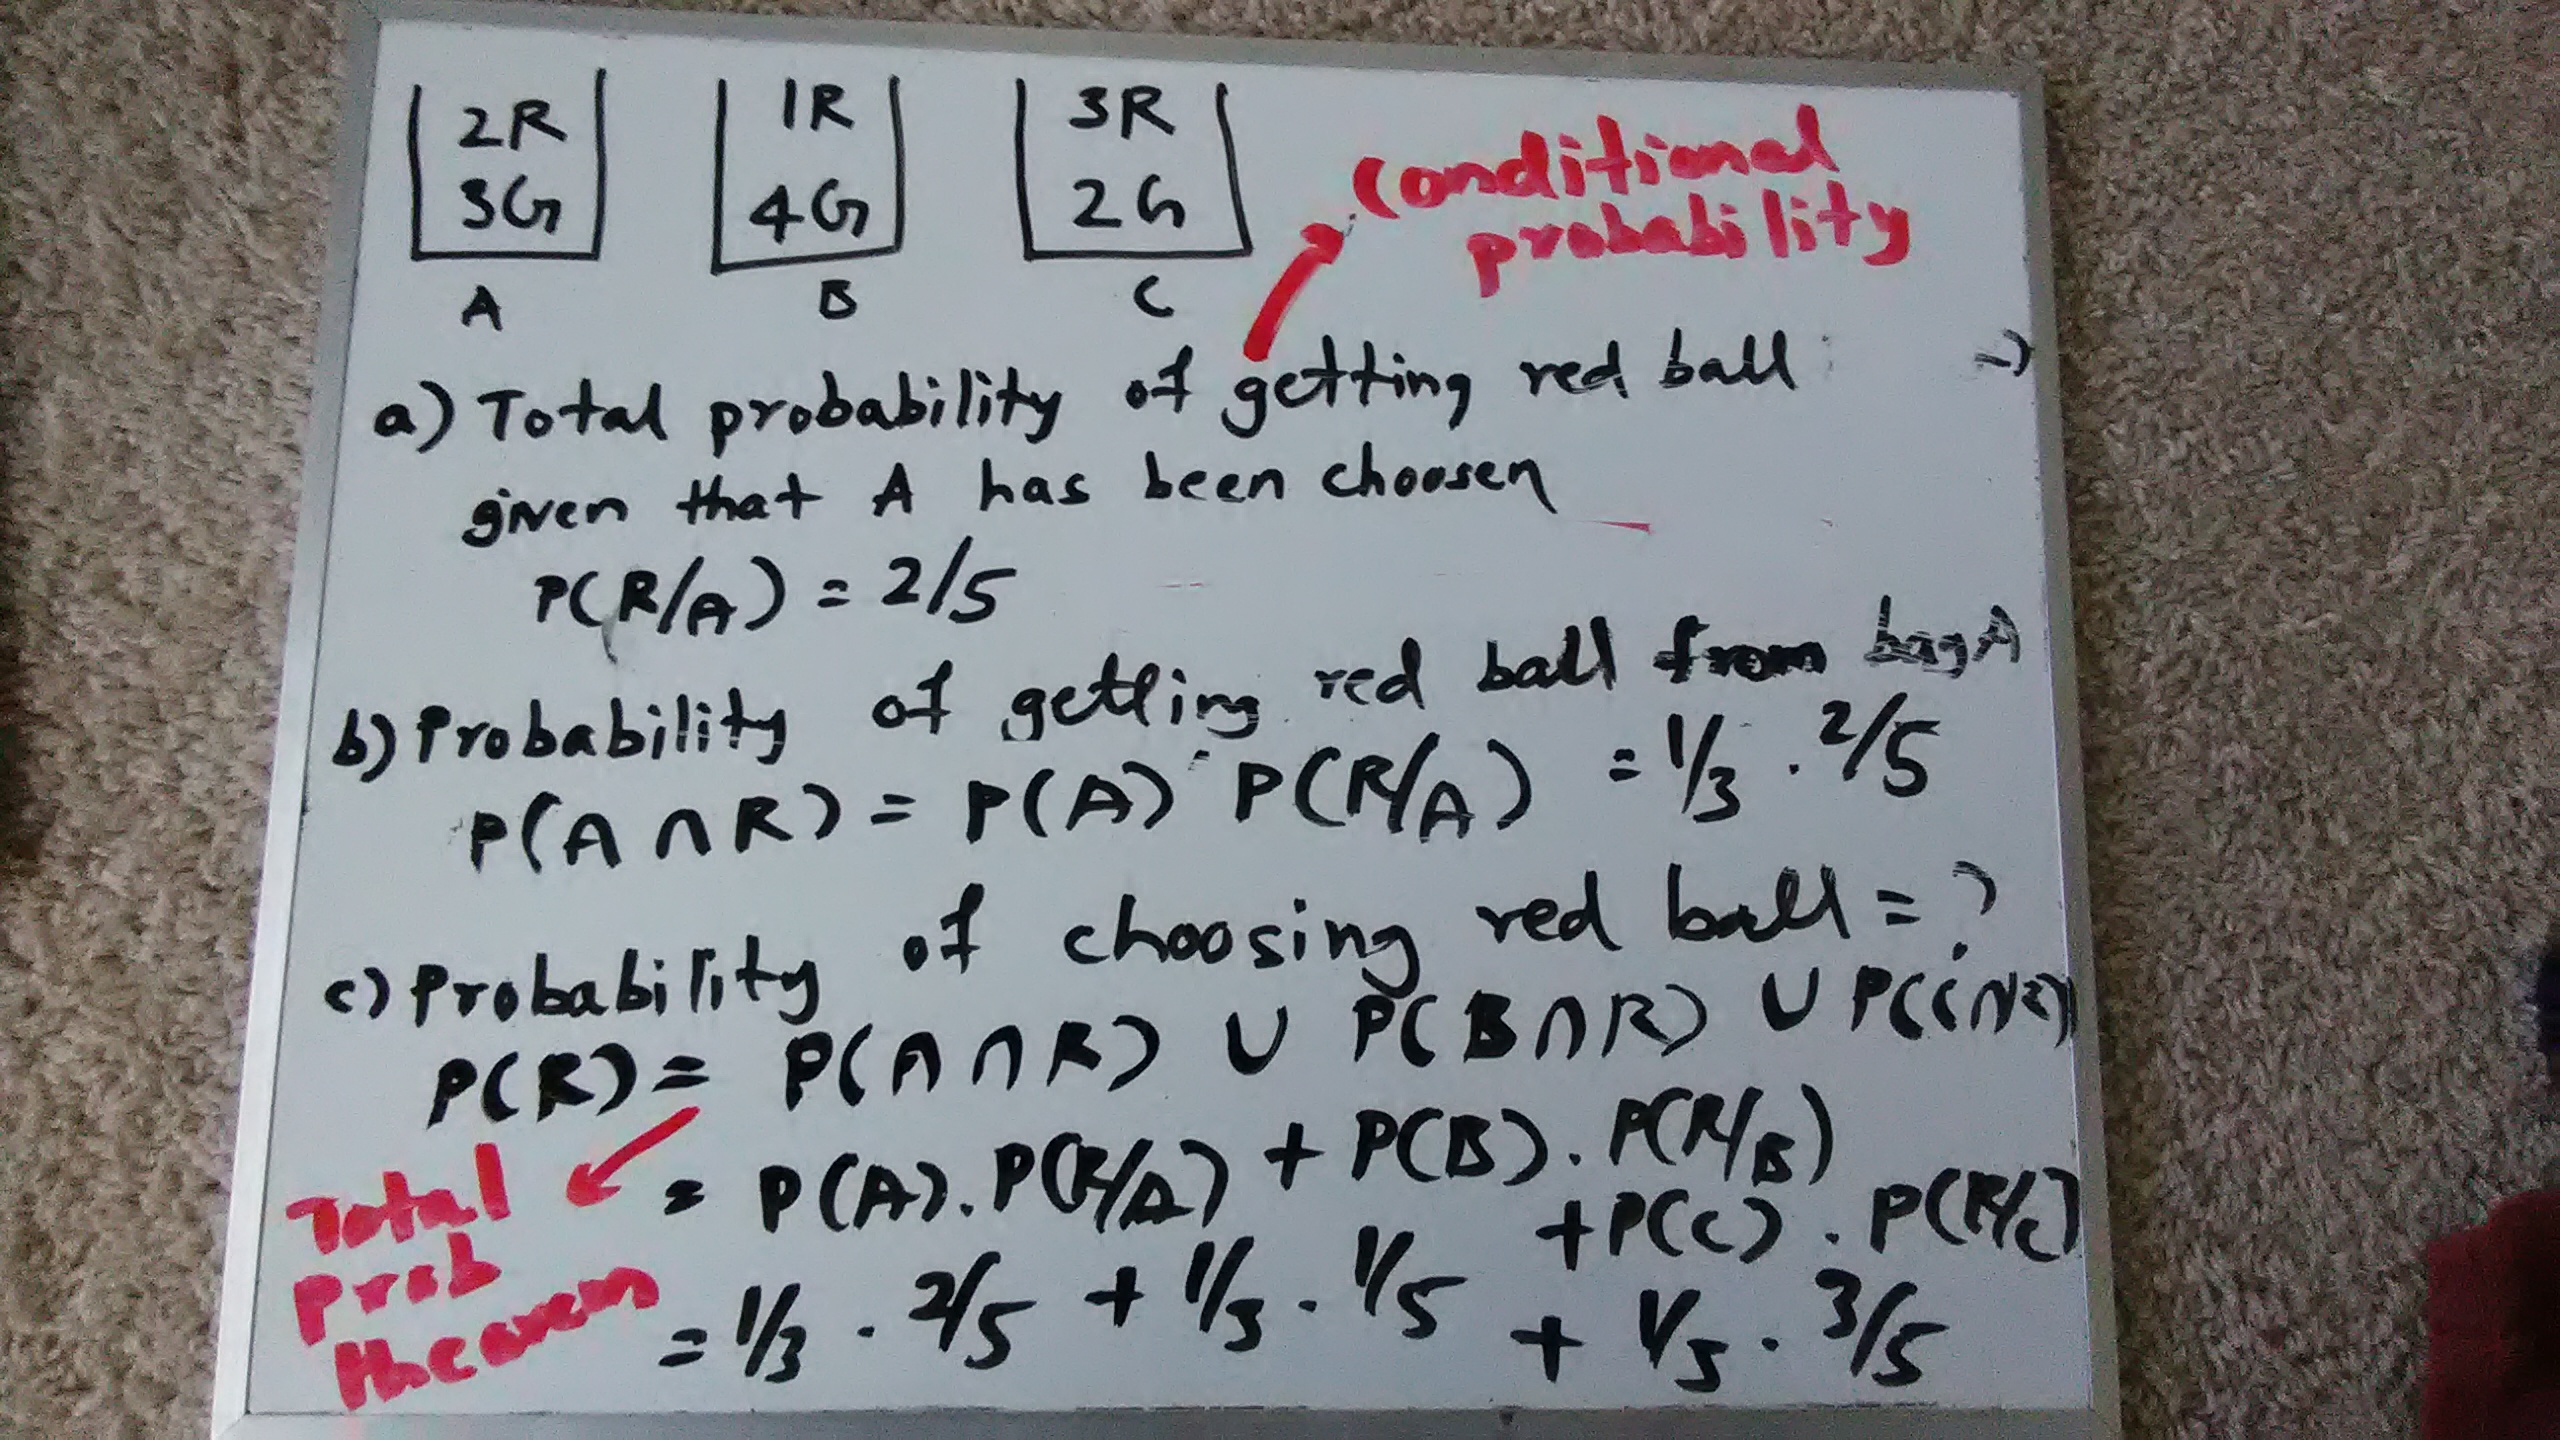 2R 1R 3R
3G 4G 2G
A B C
conditional
probability
a) Total probability of getting red ball
given that A has been choosen
P(R/A) = 2/5
b) Probability of getting red ball from bag A
P(A ∩ R) = P(A) P(R/A) = 1/3 . 2/5
c) Probability of choosing red ball = ?
P(R) = P(A ∩ R) ∪ P(B ∩ R) ∪ P(C ∩ R)
= P(A). P(R/A) + P(B). P(R/B)
+ P(C) . P(R/C)
= 1/3 . 2/5 + 1/3 . 1/5 + 1/3 . 3/5
Total
Prob
theorem